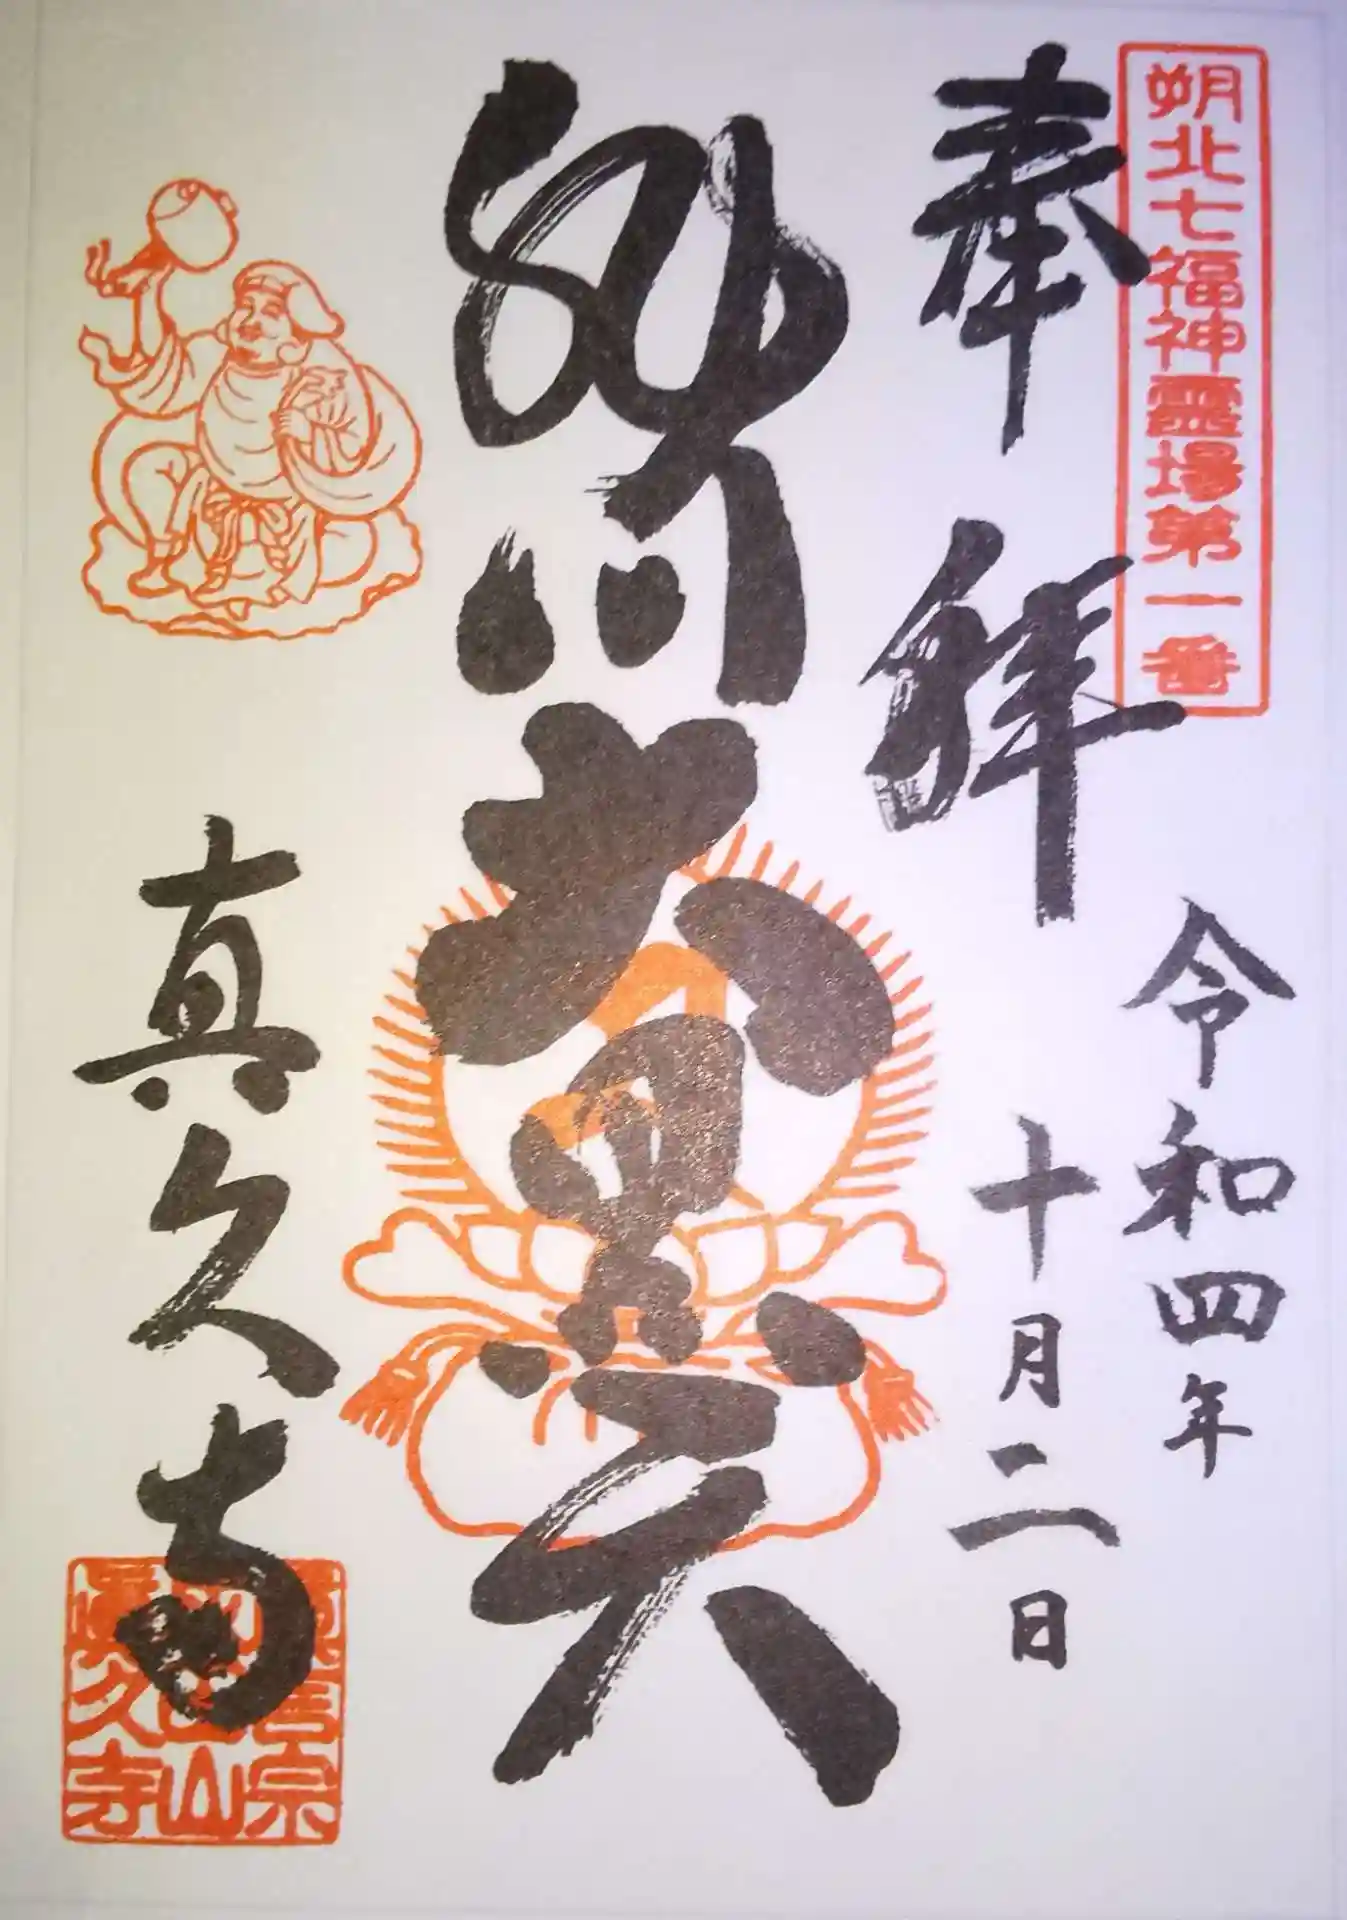 朔北七福神霊場第一番
奉拝
令和四年
十月二日
大黒天
真久寺
眞久寺